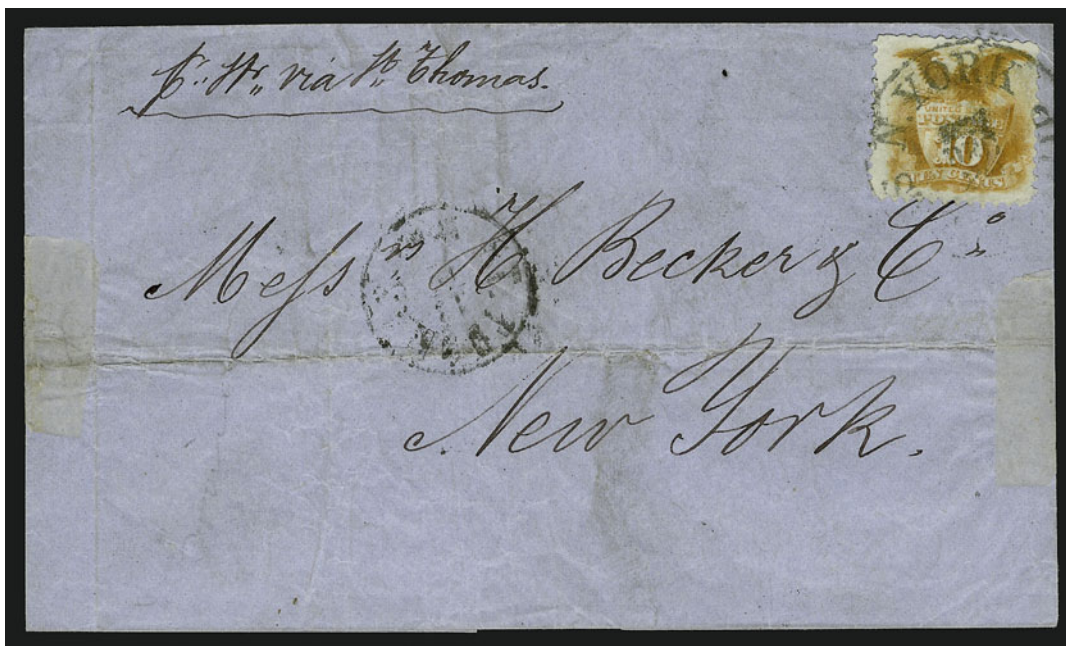 pr. Str. via St. Thomas.
N. YORK
UNITED STATES
POSTAGE
10
TEN CENTS
Messrs H Becker & Co.
New York.